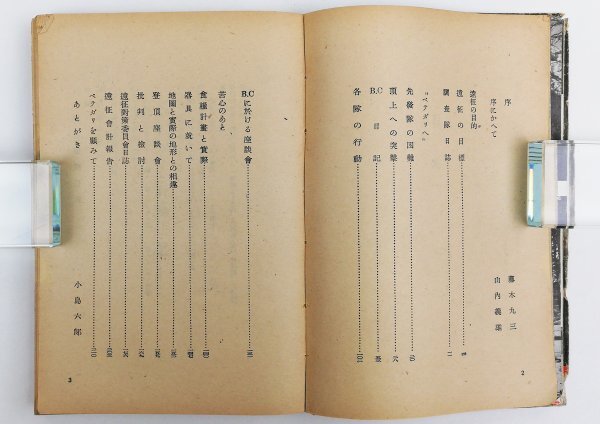 序 藤木九三
序にかへて 山内義雄
遠征の目的
遠征の目標
調査隊日誌
"ペテガリへ"
先發隊の困難
頂上への突撃
B.C日記
各隊の行動
2
B.Cに於ける座談會
苦心のあと
食糧計畫と實際
器具に就いて
地圖と實際の地形との相違
登頂座談會
批判と檢討
遠征對策委員會日誌
遠征會計報告
ペテガリを顧みて
あとがき 小島六郎
3